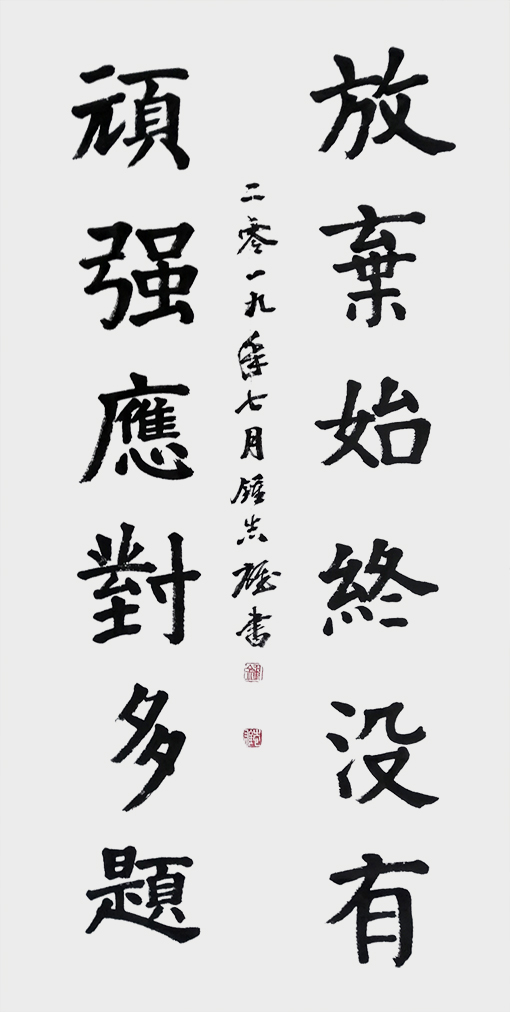 放棄始終没有
頑强應對多題
二零一九年七月鍾志雄書